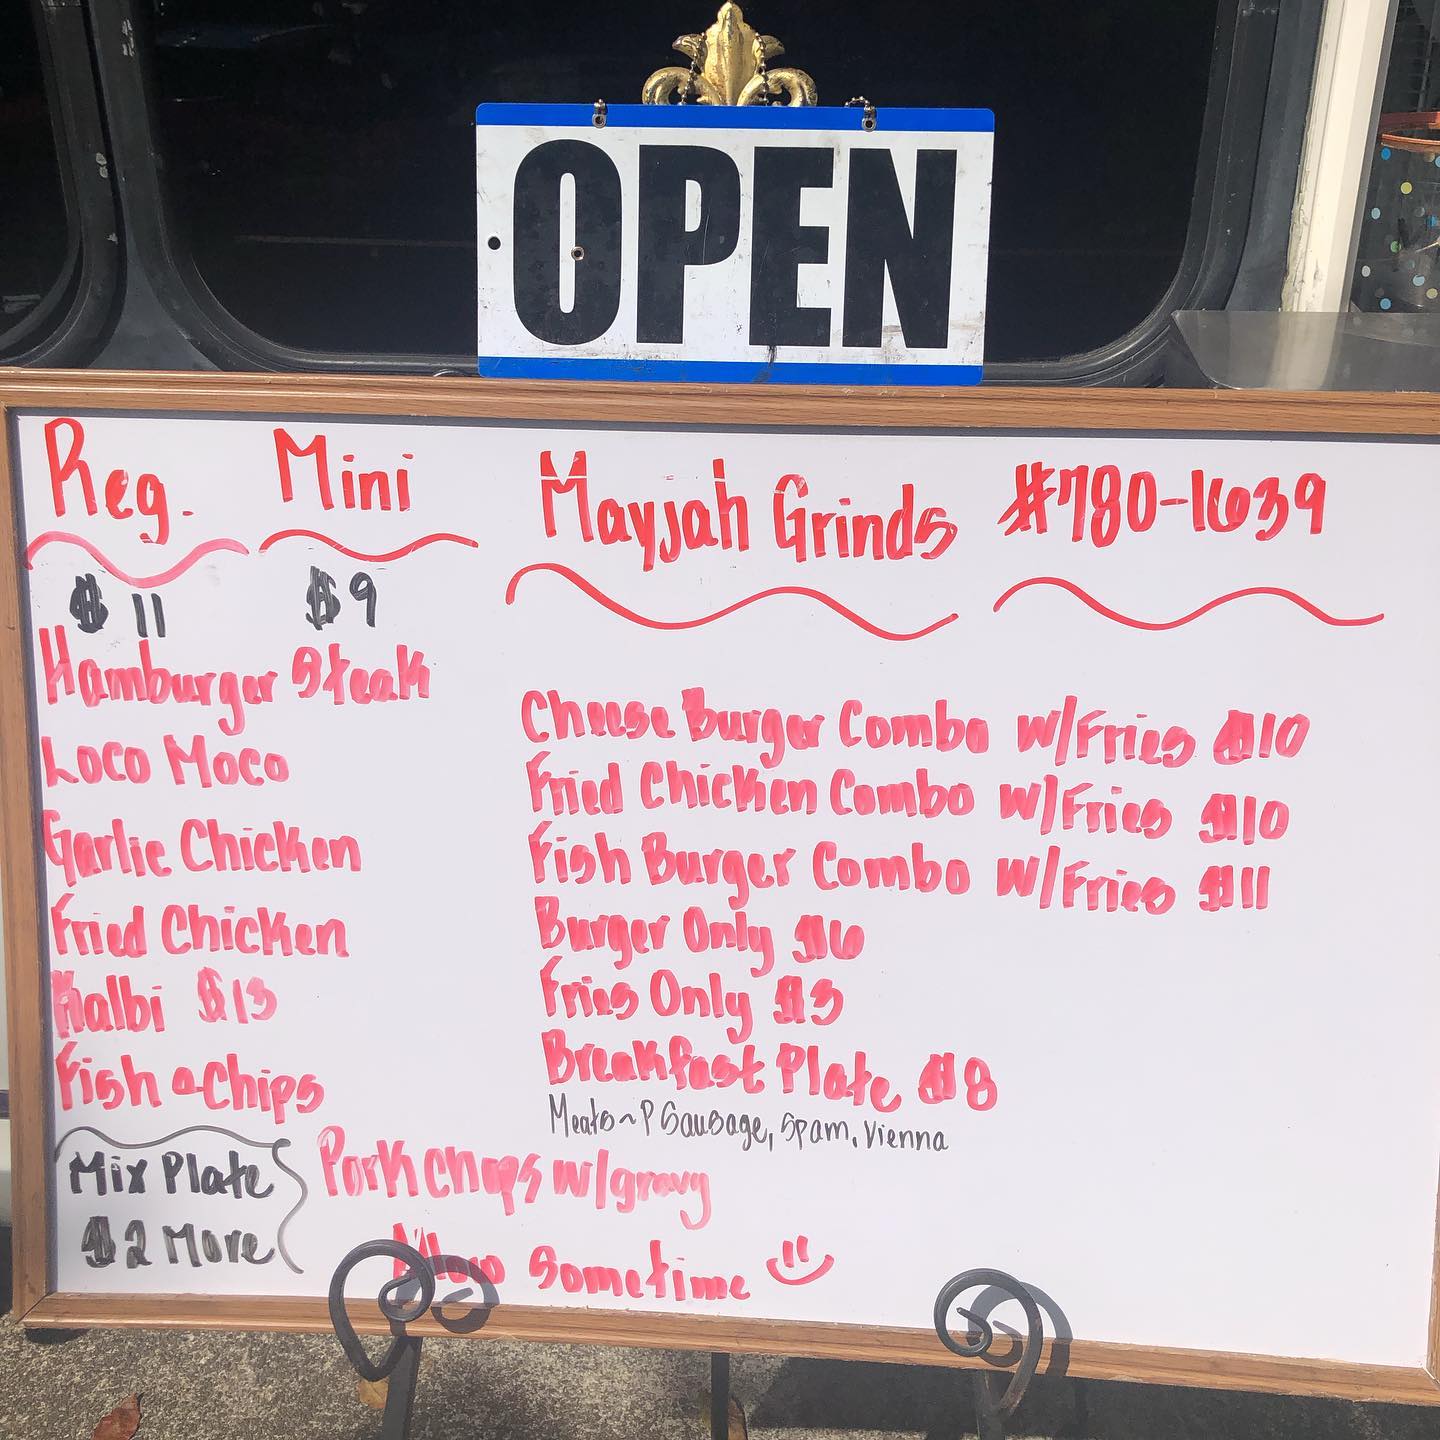 OPEN
Reg. Mini
$11 $9
Hamburger Steak
Loco Moco
Garlic Chicken
Fried Chicken
Kalbi $13
Fish & Chips
Mix Plate
$2 More
Pork Chops w/gravy
Sometime
Mayjah Grinds #780-1639
Cheese Burger Combo w/Fries $10
Fried Chicken Combo w/Fries $10
Fish Burger Combo w/Fries $11
Burger Only $6
Fries Only $3
Breakfast Plate $8
Meats~P Sausage, Spam, Vienna